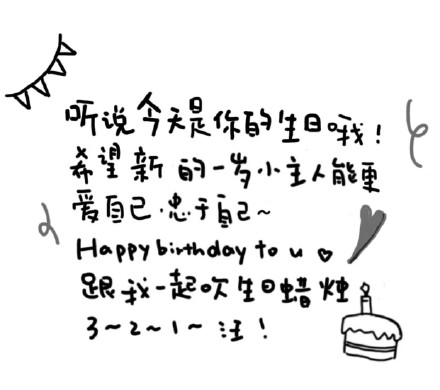 听说今天是你的生日哦！
希望新的一岁小主人能更
爱自己·忠于自己～
Happy birthday to u ♡
跟我一起吹生日蜡烛
3～2～1～汪！